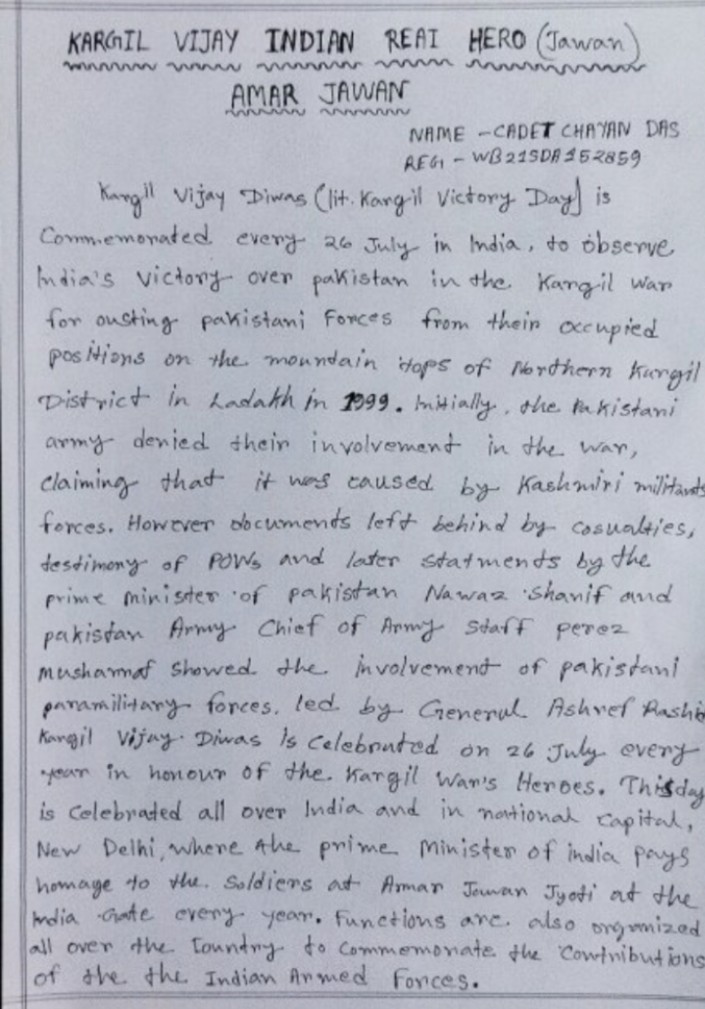 KARGIL VIJAY INDIAN REAI HERO (Jawan)
AMAR JAWAN
NAME - CADET CHAYAN DAS
REG - WB21SDA152859
Kargil Vijay Diwas (lit. Kargil Victory Day) is
Commemorated every 26 July in India, to observe
India's victory over pakistan in the Kargil War
for ousting pakistani Forces from their occupied
positions on the mountain tops of Northern Kargil
District in Ladakh in 1999. Initially, the Pakistani
army denied their involvement in the war,
claiming that it was caused by Kashmiri militants
forces. However documents left behind by casualties,
testimony of POWs and later statments by the
prime minister of pakistan Nawaz Shanif and
pakistan Army Chief of Army Staff perez
musharraf showed the involvement of pakistani
paramilitary forces. led by General Ashref Rashi
Kargil Vijay Diwas is celebrated on 26 July every
year in honour of the Kargil War's Heroes. This day
is celebrated all over India and in national capital,
New Delhi, where the prime Minister of india pays
homage to the Soldiers at Amar Jawan Jyoti at the
India Gate every year. Functions are also organized
all over the Country to commemorate the Contributions
of the the Indian Armed Forces.